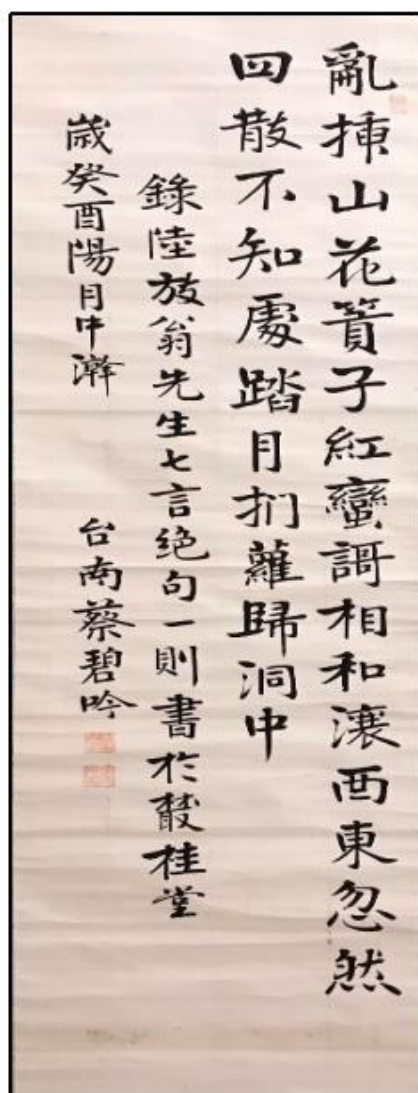 亂挿山花篢子紅蠻謌相和瀼西東忽然
四散不知處踏月捫蘿歸洞中
錄陸放翁先生七言絕句一則書於叢桂堂
歲癸酉陽月中澣 台南蔡碧吟